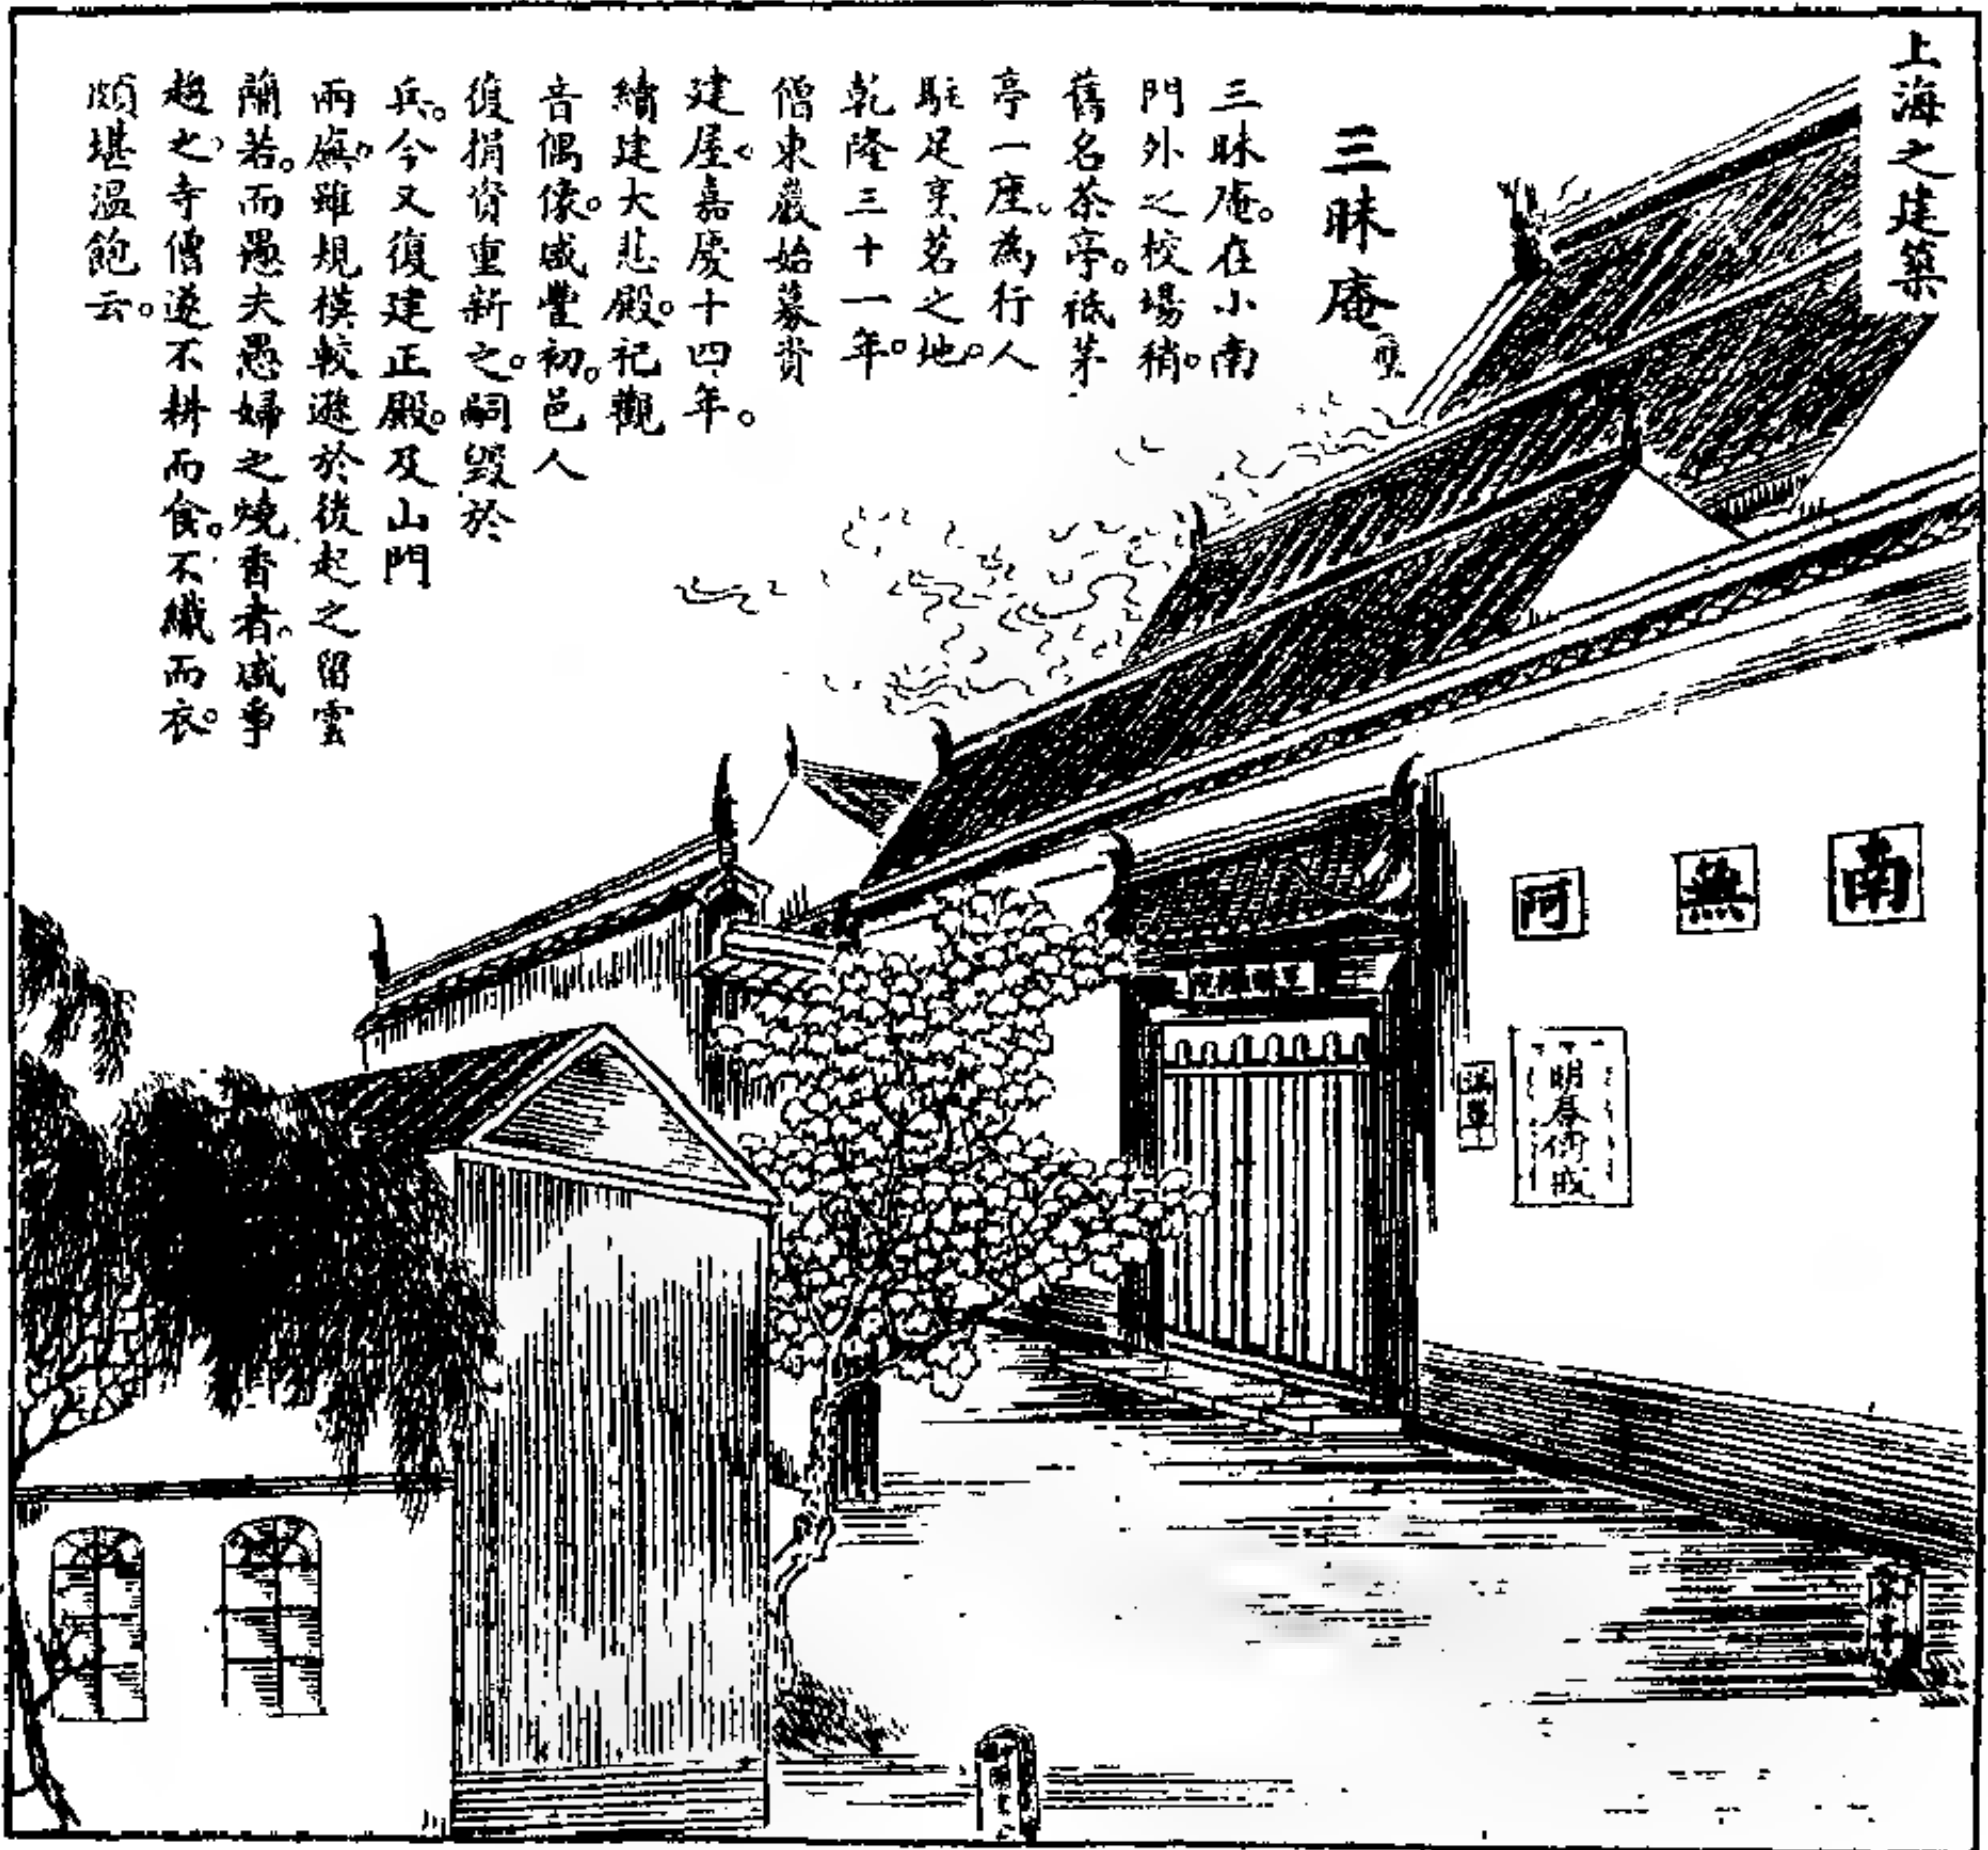 上海之建築
三昧庵
三昧庵。在小南
門外之校場稍。
舊名茶亭。祗茅
亭一座。為行人
駐足烹茗之地。
乾隆三十一年。
僧東巖始募貲
建屋。嘉慶十四年。
續建大悲殿。祀觀
音偶像。咸豐初。邑人
復捐資重新之。嗣毀於
兵。今又復建正殿。及山門
兩廡。雖規模較遜於後起之留雲
蘭若。而愚夫愚婦之燒香者。咸爭
趨之。寺僧遂不耕而食。不織而衣。
頗堪溫飽云。
南無阿
明春傳戒
茶亭